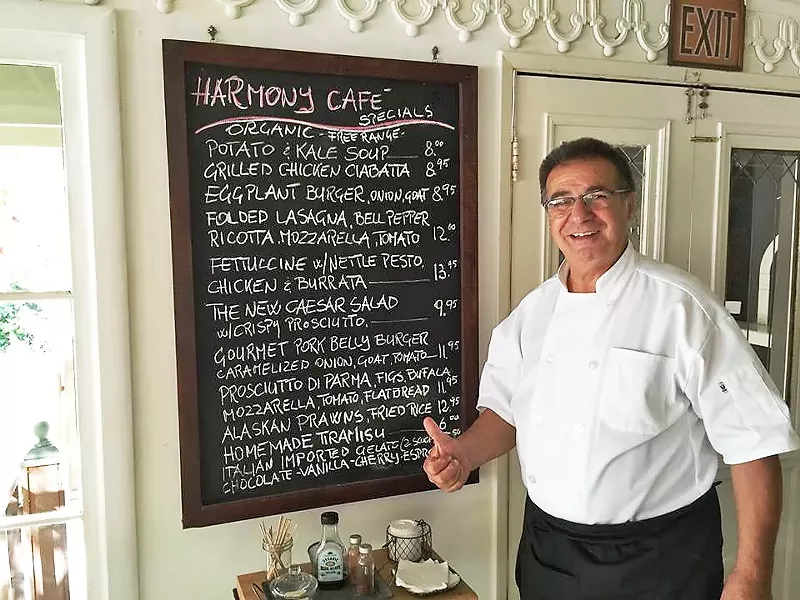 HARMONY CAFE
SPECIALS
ORGANIC - FREE RANGE -
POTATO & KALE SOUP 8.00
GRILLED CHICKEN CIABATTA 8.95
EGGPLANT BURGER, ONION, GOAT 8.95
FOLDED LASAGNA, BELL PEPPER
RICOTTA, MOZZARELLA, TOMATO 12.00
FETTUCCINE W/NETTLE PESTO,
CHICKEN & BURRATA 13.95
THE NEW CAESAR SALAD
W/CRISPY PROSCIUTTO. 9.95
GOURMET PORK BELLY BURGER
CARAMELIZED ONION, GOAT, TOMATO 11.95
PROSCIUTTO DI PARMA, FIGS, BUFALA
MOZZARELLA, TOMATO, FLATBREAD 11.95
ALASKAN PRAWNS, FRIED RICE 12.95
HOMEMADE TRAMISU 6.00
ITALIAN IMPORTED GELATO/2
CHOCOLATE - VANILLA - CHERRY -
EXIT